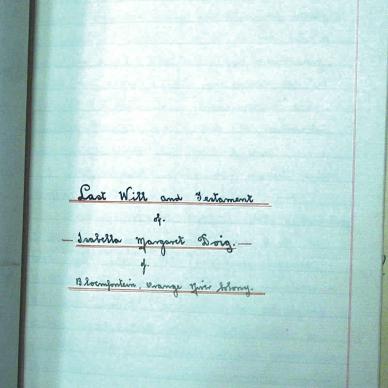 Last Will and Testament
of.
Isabella Margaret Doig.
of
Bloemfontein, Orange River Colony.